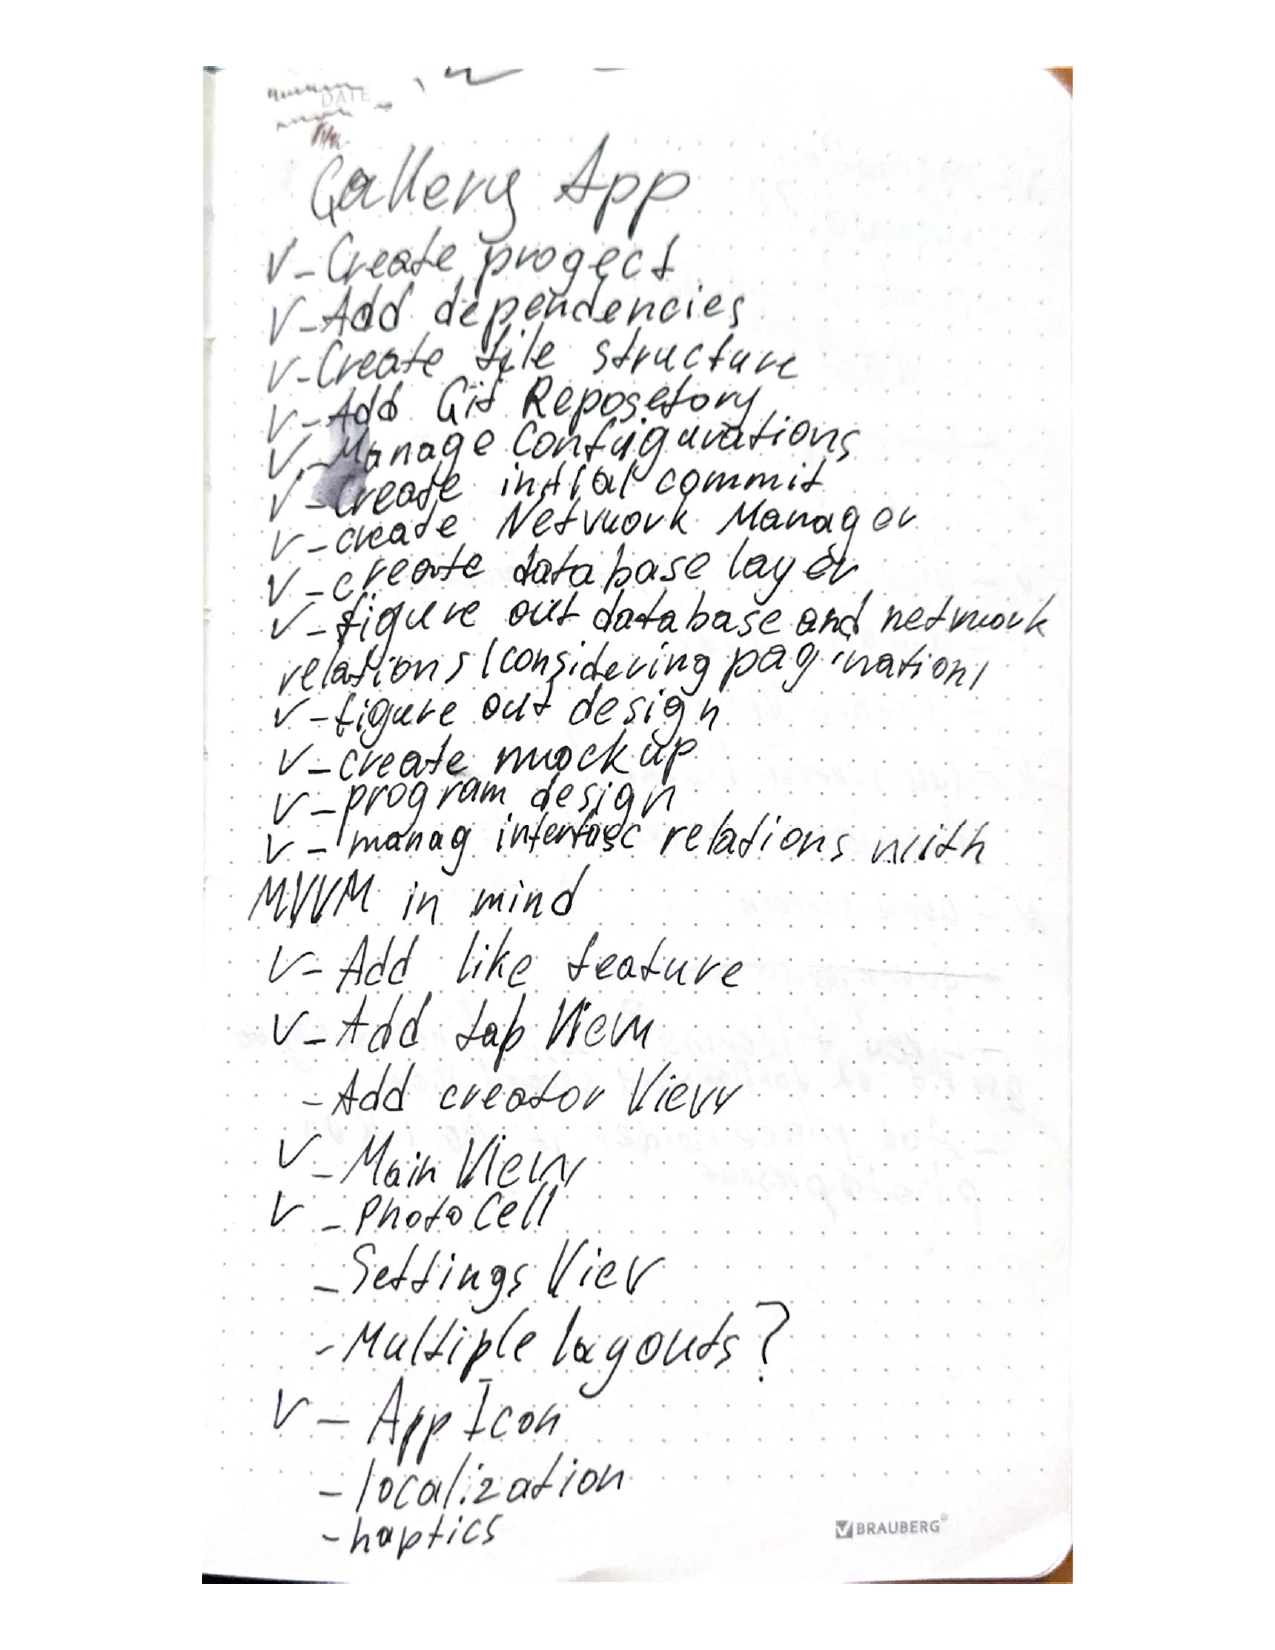 DATE
Gallery App
V - Create progect
V - Add dependencies
V - Create file structure
V - Add Git Reposetory
V - Manage Configurations
V - Create intial commit
V - create Network Manager
V - create database layer
V - figure out database and network
relations (considering pagination)
V - figure out design
V - create mockup
V - program design
V - manag interfase relations with
MVVM in mind
V - Add like feature
V - Add tab View
- Add creator View
V - Main View
V - Photo Cell
- Settings View
- Multiple layouts?
V - App Icon
- localization
- haptics
BRAUBERG®